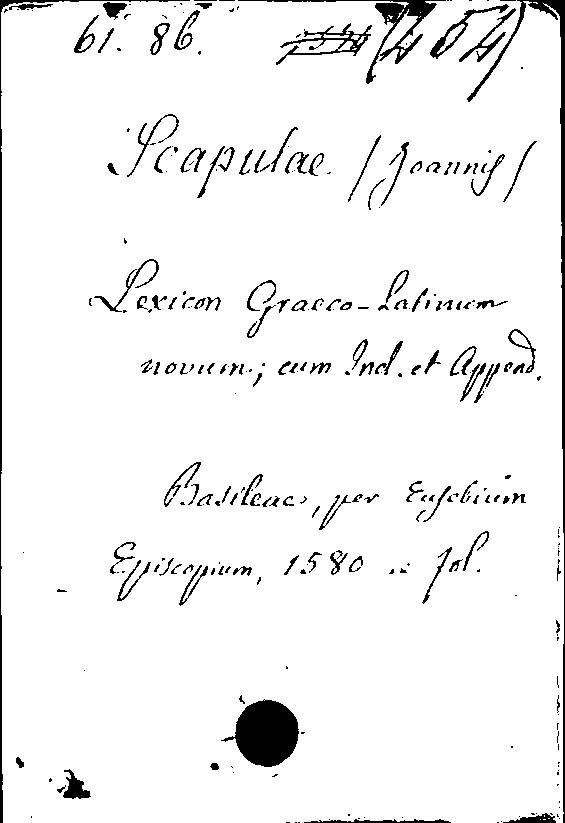 61. 86. (454)
Scapulae. /Joannis/
Lexicon Graeco-Latinum
novum; cum Ind. et Append.
Basileae, per Eusebium
Episcopium, 1580 in fol.